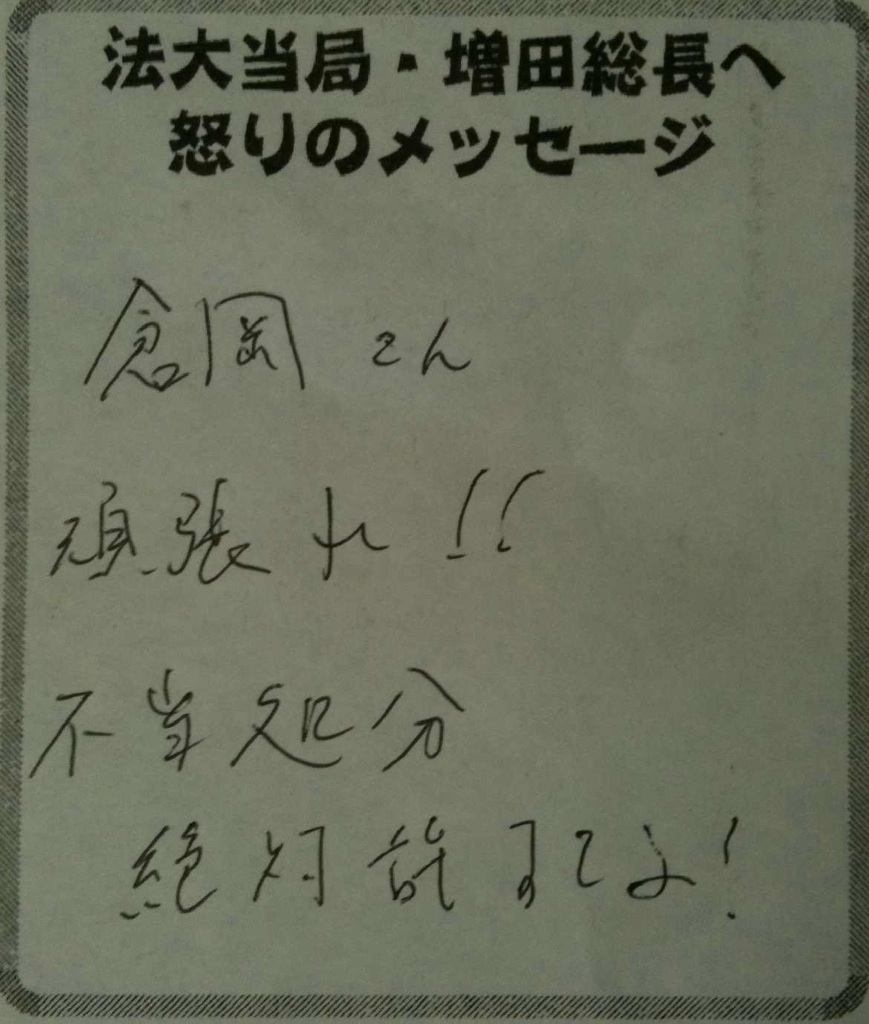 法大当局・増田総長へ
怒りのメッセージ
倉岡さん
頑張れ!!
不当処分
絶対